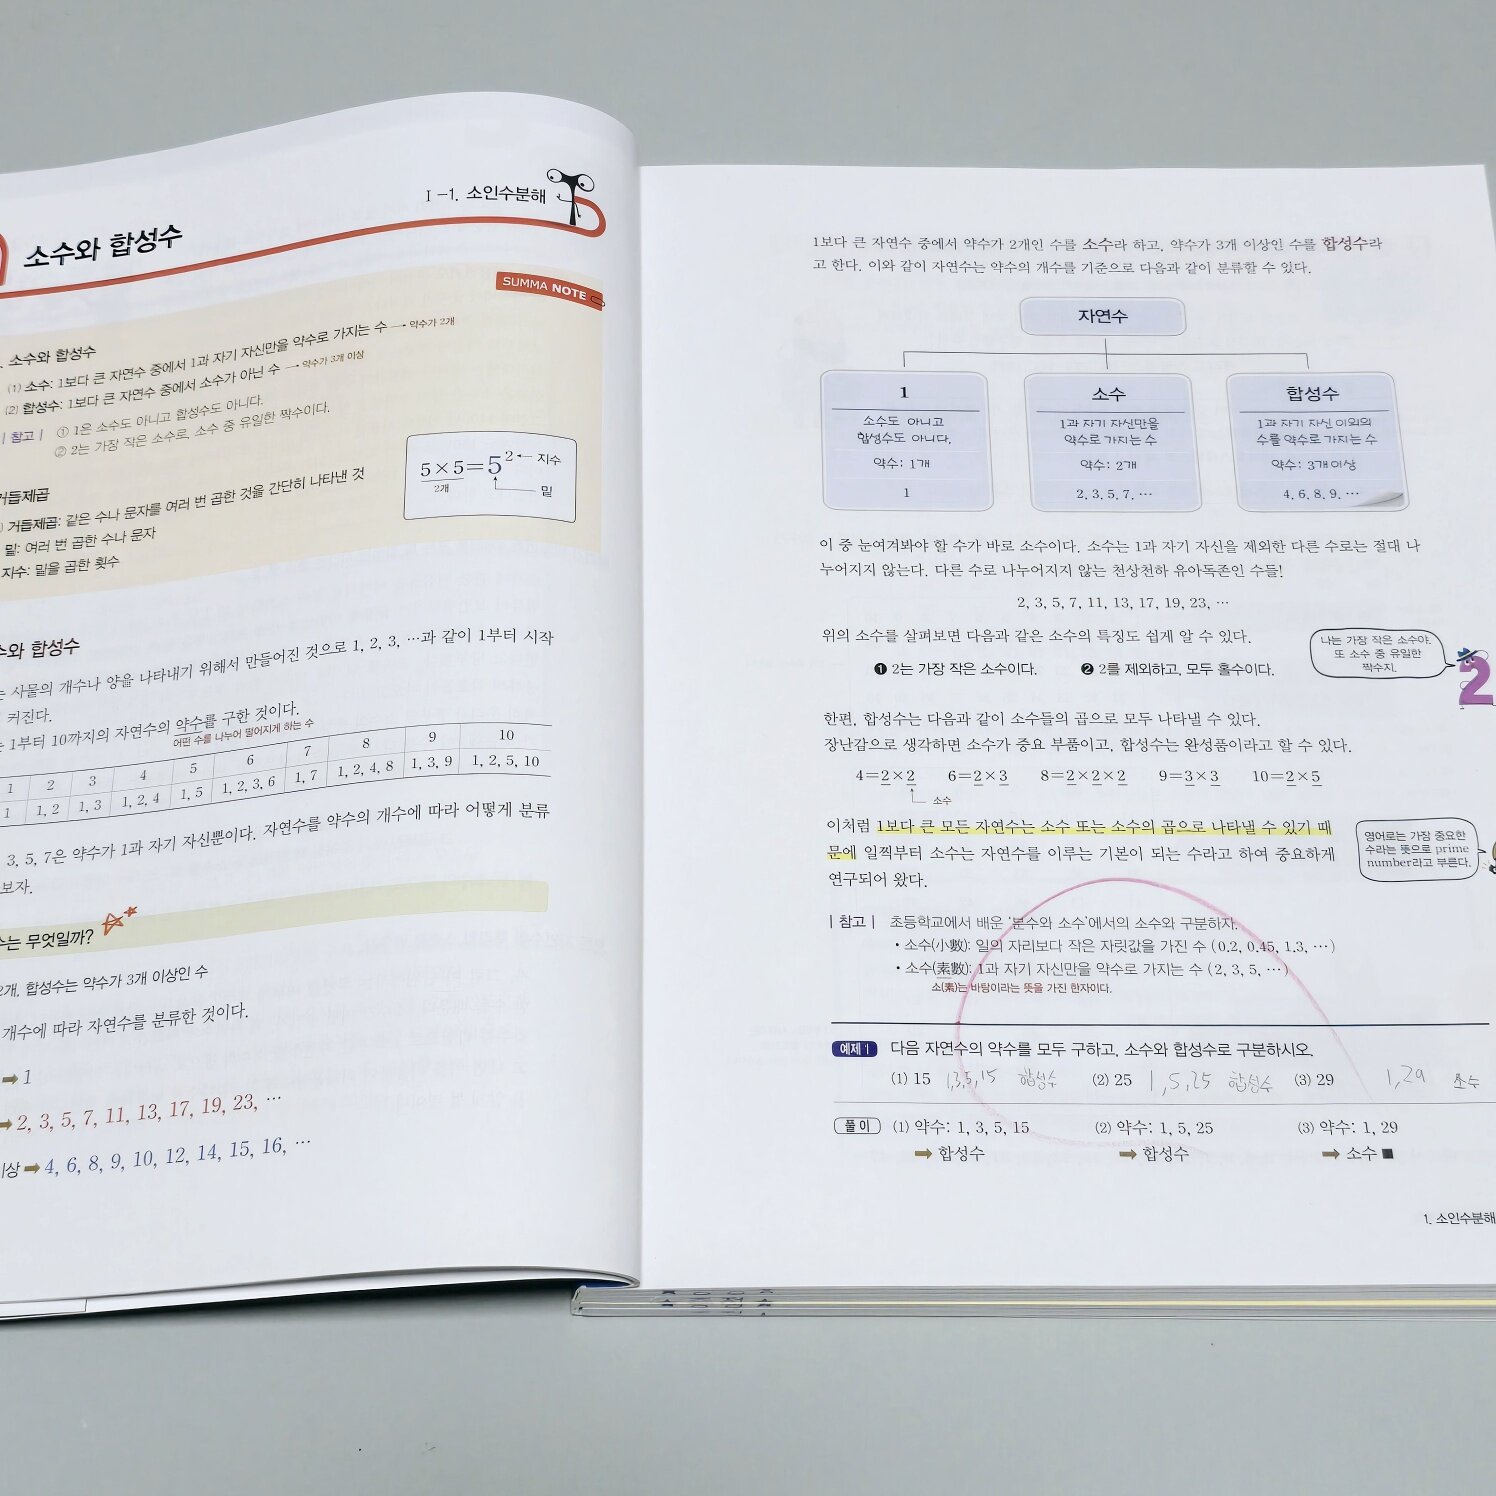 I-1. 소인수분해
소수와 합성수
SUMMA NOTE
소수와 합성수
(1) 소수: 1보다 큰 자연수 중에서 1과 자기 자신만을 약수로 가지는 수 → 약수가 2개
(2) 합성수: 1보다 큰 자연수 중에서 소수가 아닌 수 → 약수가 3개 이상
| 참고 | ① 1은 소수도 아니고 합성수도 아니다.
② 2는 가장 작은 소수로, 소수 중 유일한 짝수이다.
거듭제곱
거듭제곱: 같은 수나 문자를 여러 번 곱한 것을 간단히 나타낸 것
밑: 여러 번 곱한 수나 문자
지수: 밑을 곱한 횟수
5×5=5² ← 지수
2개
밑
수와 합성수
는 사물의 개수나 양을 나타내기 위해서 만들어진 것으로 1, 2, 3, …과 같이 1부터 시작
커진다.
는 1부터 10까지의 자연수의 약수를 구한 것이다.
어떤 수를 나누어 떨어지게 하는 수
1 2 3 4 5 6 7 8 9 10
1 1, 2 1, 3 1, 2, 4 1, 5 1, 2, 3, 6 1, 7 1, 2, 4, 8 1, 3, 9 1, 2, 5, 10
3, 5, 7은 약수가 1과 자기 자신뿐이다. 자연수를 약수의 개수에 따라 어떻게 분류
보자.
수는 무엇일까?
2개, 합성수는 약수가 3개 이상인 수
개수에 따라 자연수를 분류한 것이다.
➡ 1
➡ 2, 3, 5, 7, 11, 13, 17, 19, 23, …
이상 ➡ 4, 6, 8, 9, 10, 12, 14, 15, 16, …
1보다 큰 자연수 중에서 약수가 2개인 수를 소수라 하고, 약수가 3개 이상인 수를 합성수라
고 한다. 이와 같이 자연수는 약수의 개수를 기준으로 다음과 같이 분류할 수 있다.
자연수
1
소수도 아니고
합성수도 아니다.
약수: 1개
1
소수
1과 자기 자신만을
약수로 가지는 수
약수: 2개
2, 3, 5, 7, …
합성수
1과 자기 자신 이외의
수를 약수로 가지는 수
약수: 3개 이상
4, 6, 8, 9, …
이 중 눈여겨봐야 할 수가 바로 소수이다. 소수는 1과 자기 자신을 제외한 다른 수로는 절대 나
누어지지 않는다. 다른 수로 나누어지지 않는 천상천하 유아독존인 수들!
2, 3, 5, 7, 11, 13, 17, 19, 23, …
위의 소수를 살펴보면 다음과 같은 소수의 특징도 쉽게 알 수 있다.
❶ 2는 가장 작은 소수이다. ❷ 2를 제외하고, 모두 홀수이다.
나는 가장 작은 소수야.
또 소수 중 유일한
짝수지.
2
한편, 합성수는 다음과 같이 소수들의 곱으로 모두 나타낼 수 있다.
장난감으로 생각하면 소수가 중요 부품이고, 합성수는 완성품이라고 할 수 있다.
4=2×2 6=2×3 8=2×2×2 9=3×3 10=2×5
소수
이처럼 1보다 큰 모든 자연수는 소수 또는 소수의 곱으로 나타낼 수 있기 때
문에 일찍부터 소수는 자연수를 이루는 기본이 되는 수라고 하여 중요하게
연구되어 왔다.
영어로는 가장 중요한
수라는 뜻으로 prime
number라고 부른다.
| 참고 | 초등학교에서 배운 '분수와 소수'에서의 소수와 구분하자.
• 소수(小數): 일의 자리보다 작은 자릿값을 가진 수 (0.2, 0.45, 1.3, …)
• 소수(素數): 1과 자기 자신만을 약수로 가지는 수 (2, 3, 5, …)
소(素)는 바탕이라는 뜻을 가진 한자이다.
예제 1 다음 자연수의 약수를 모두 구하고, 소수와 합성수로 구분하시오.
(1) 15 1,3,5,15 합성수 (2) 25 1,5,25 합성수 (3) 29 1,29 소수
풀이 (1) 약수: 1, 3, 5, 15 (2) 약수: 1, 5, 25 (3) 약수: 1, 29
➡ 합성수 ➡ 합성수 ➡ 소수 ■
1. 소인수분해